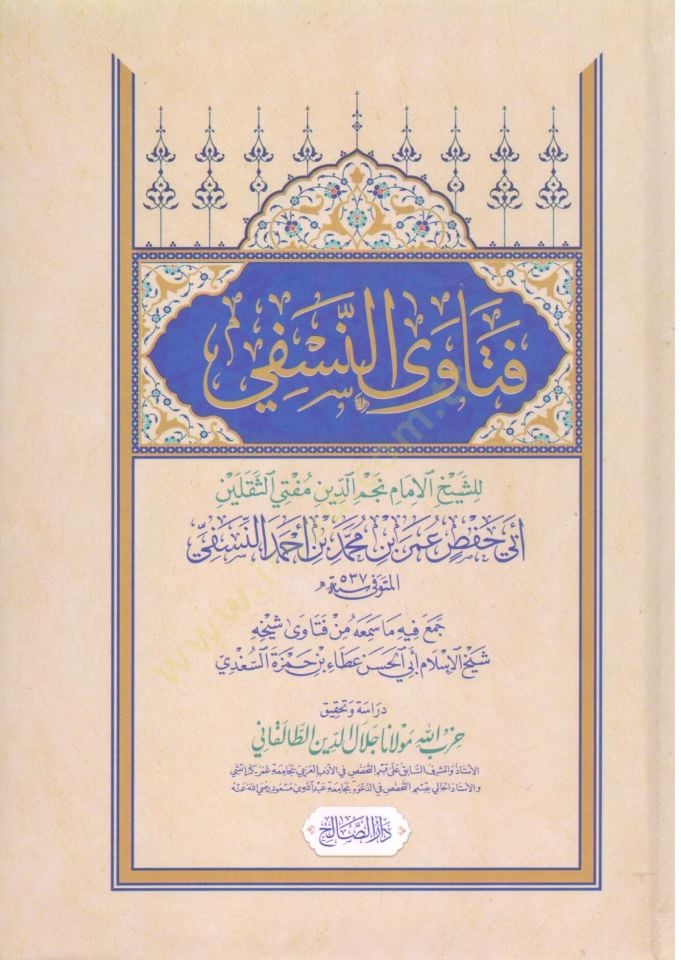 فتاوى النسفي
للشيخ الإمام نجم الدين مفتي الثقلين
أبي حفص عمر بن محمد بن أحمد النسفي
المتوفى سنة ٥٣٧هـ
جمع فيه ما سمعه من فتاوى شيخه
شيخ الإسلام أبي الحسن عطاء بن حمزة السغدي
دراسة وتحقيق
حزب الله مولانا جلال الدين الطالقاني
الأستاذ والمشرف السابق على قسم التخصص في الأدب العربي بجامعة عمر كراتشي
والأستاذ الحالي بقسم التخصص في الدعوة بجامعة عبد الله بن مسعود رضي الله عنه
دار الصالح